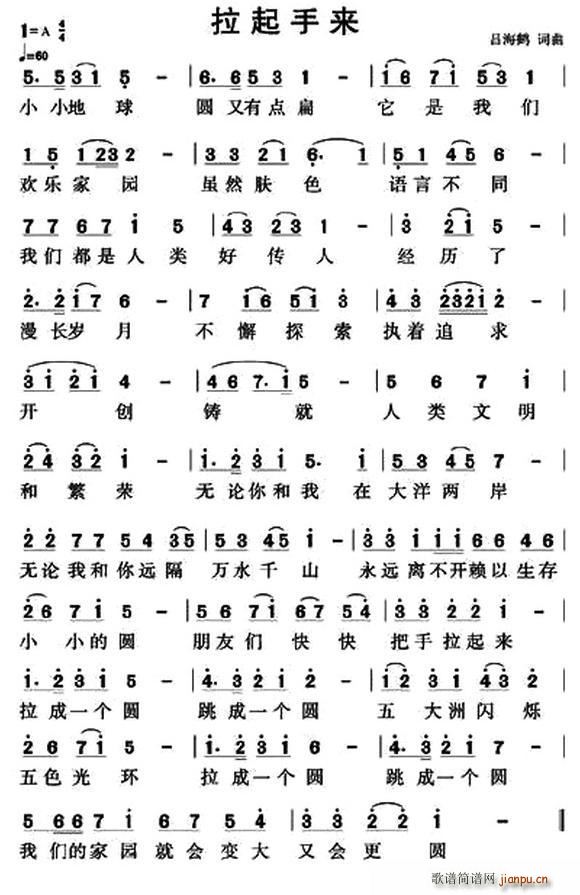 拉起手来
1=A 4/4
♩=60
吕海鹤 词曲
5. 5 3 1 5 - | 6. 6 5 3 1 - | 1 6 7 1 5 5 1 - |
小 小地 球 圆 又有点 扁 它 是 我 们
1 5 1 2 3 2 - | 3 3 2 1 6. 1 | 5 1 4 5 6 - |
欢乐家园 虽然肤色 语言不同
7 7 6 7 1 5 | 4 3 2 3 1 - | 3 2 1 5 - |
我们都是人类好传人 经历了
2. 2 1 7 6 - | 7 1 6 5 1 3 | 4 3 2 3 2 1 2 - |
漫长岁月 不懈探索执着追求
3 1 2 1 4 - | 4 6 7. 1 5 - | 5 6 7 1 |
开 创 铸 就 人类文明
2 4 3 2 1 - | 1. 2 3 1 5. 1 | 5 3 4 5 7 - |
和繁荣 无论你和我 在大洋两岸
2 2 7 7 5 4 3 5 | 5 3 4 5 1 - | 3 3 1 1 1 6 6 4 6 |
无论我和你远隔 万水千山 永远离不开赖以生存
2 6 7 1 5 - | 5 6 7 1 6 7 5 4 | 3 3 2 2 1 - |
小小的圆 朋友们 快快 把手拉起来
1. 2 3 1 5 - | 4. 3 2 1 2 - | 1 2 3 1 4 3 5 - |
拉成一个圆 跳成一个圆 五大洲闪烁
2 6 7 1 5 - | 1. 2 3 1 5 - | 4. 3 2 1 2 - |
五色光环 拉成一个圆 跳成一个圆
5 6 6 7 2 6 7 5 4 | 3 3 2 2 1 - ‖
我们的家园就会变大 又会更圆
歌谱简谱网
jianpu.cn